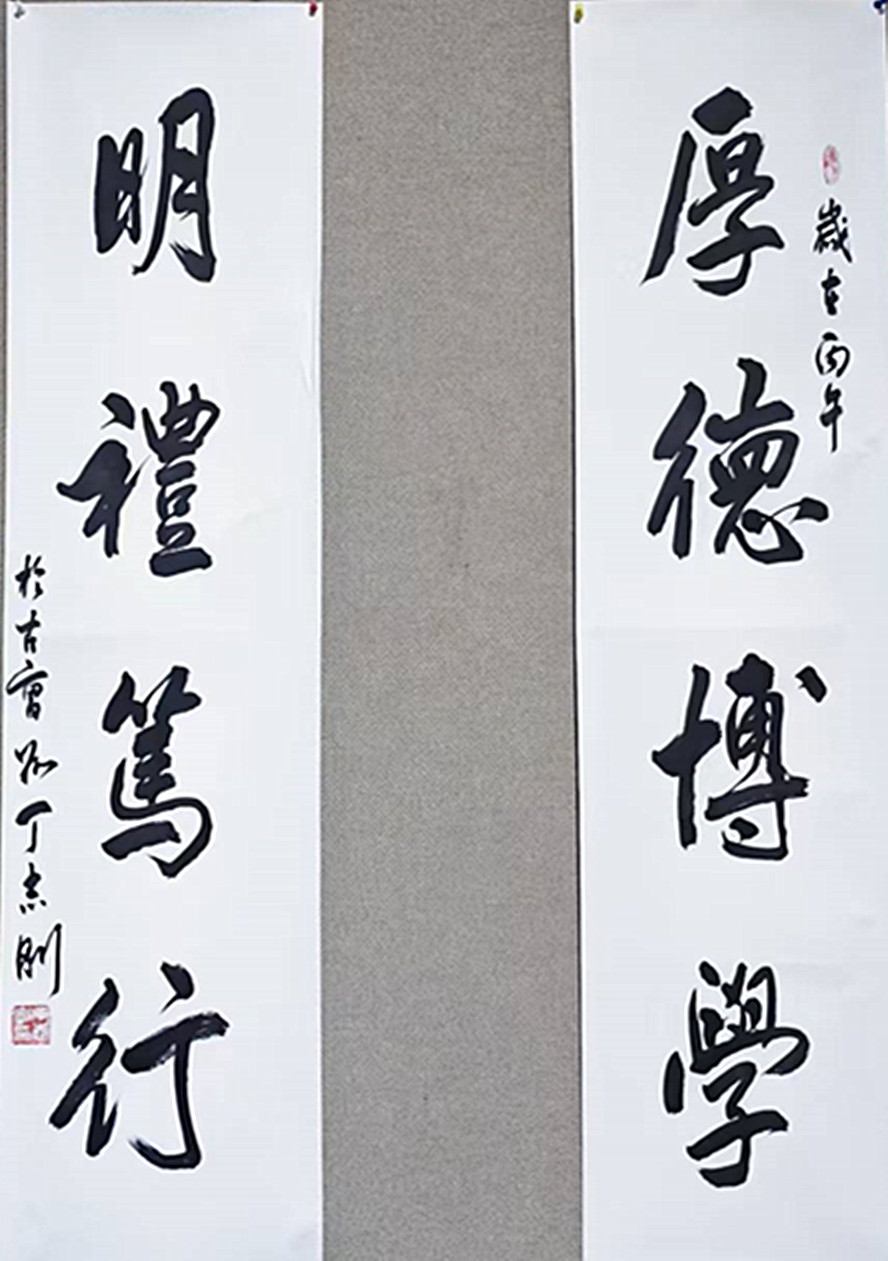 歲在丙午
厚德博學
明禮篤行
於古 丁志剛